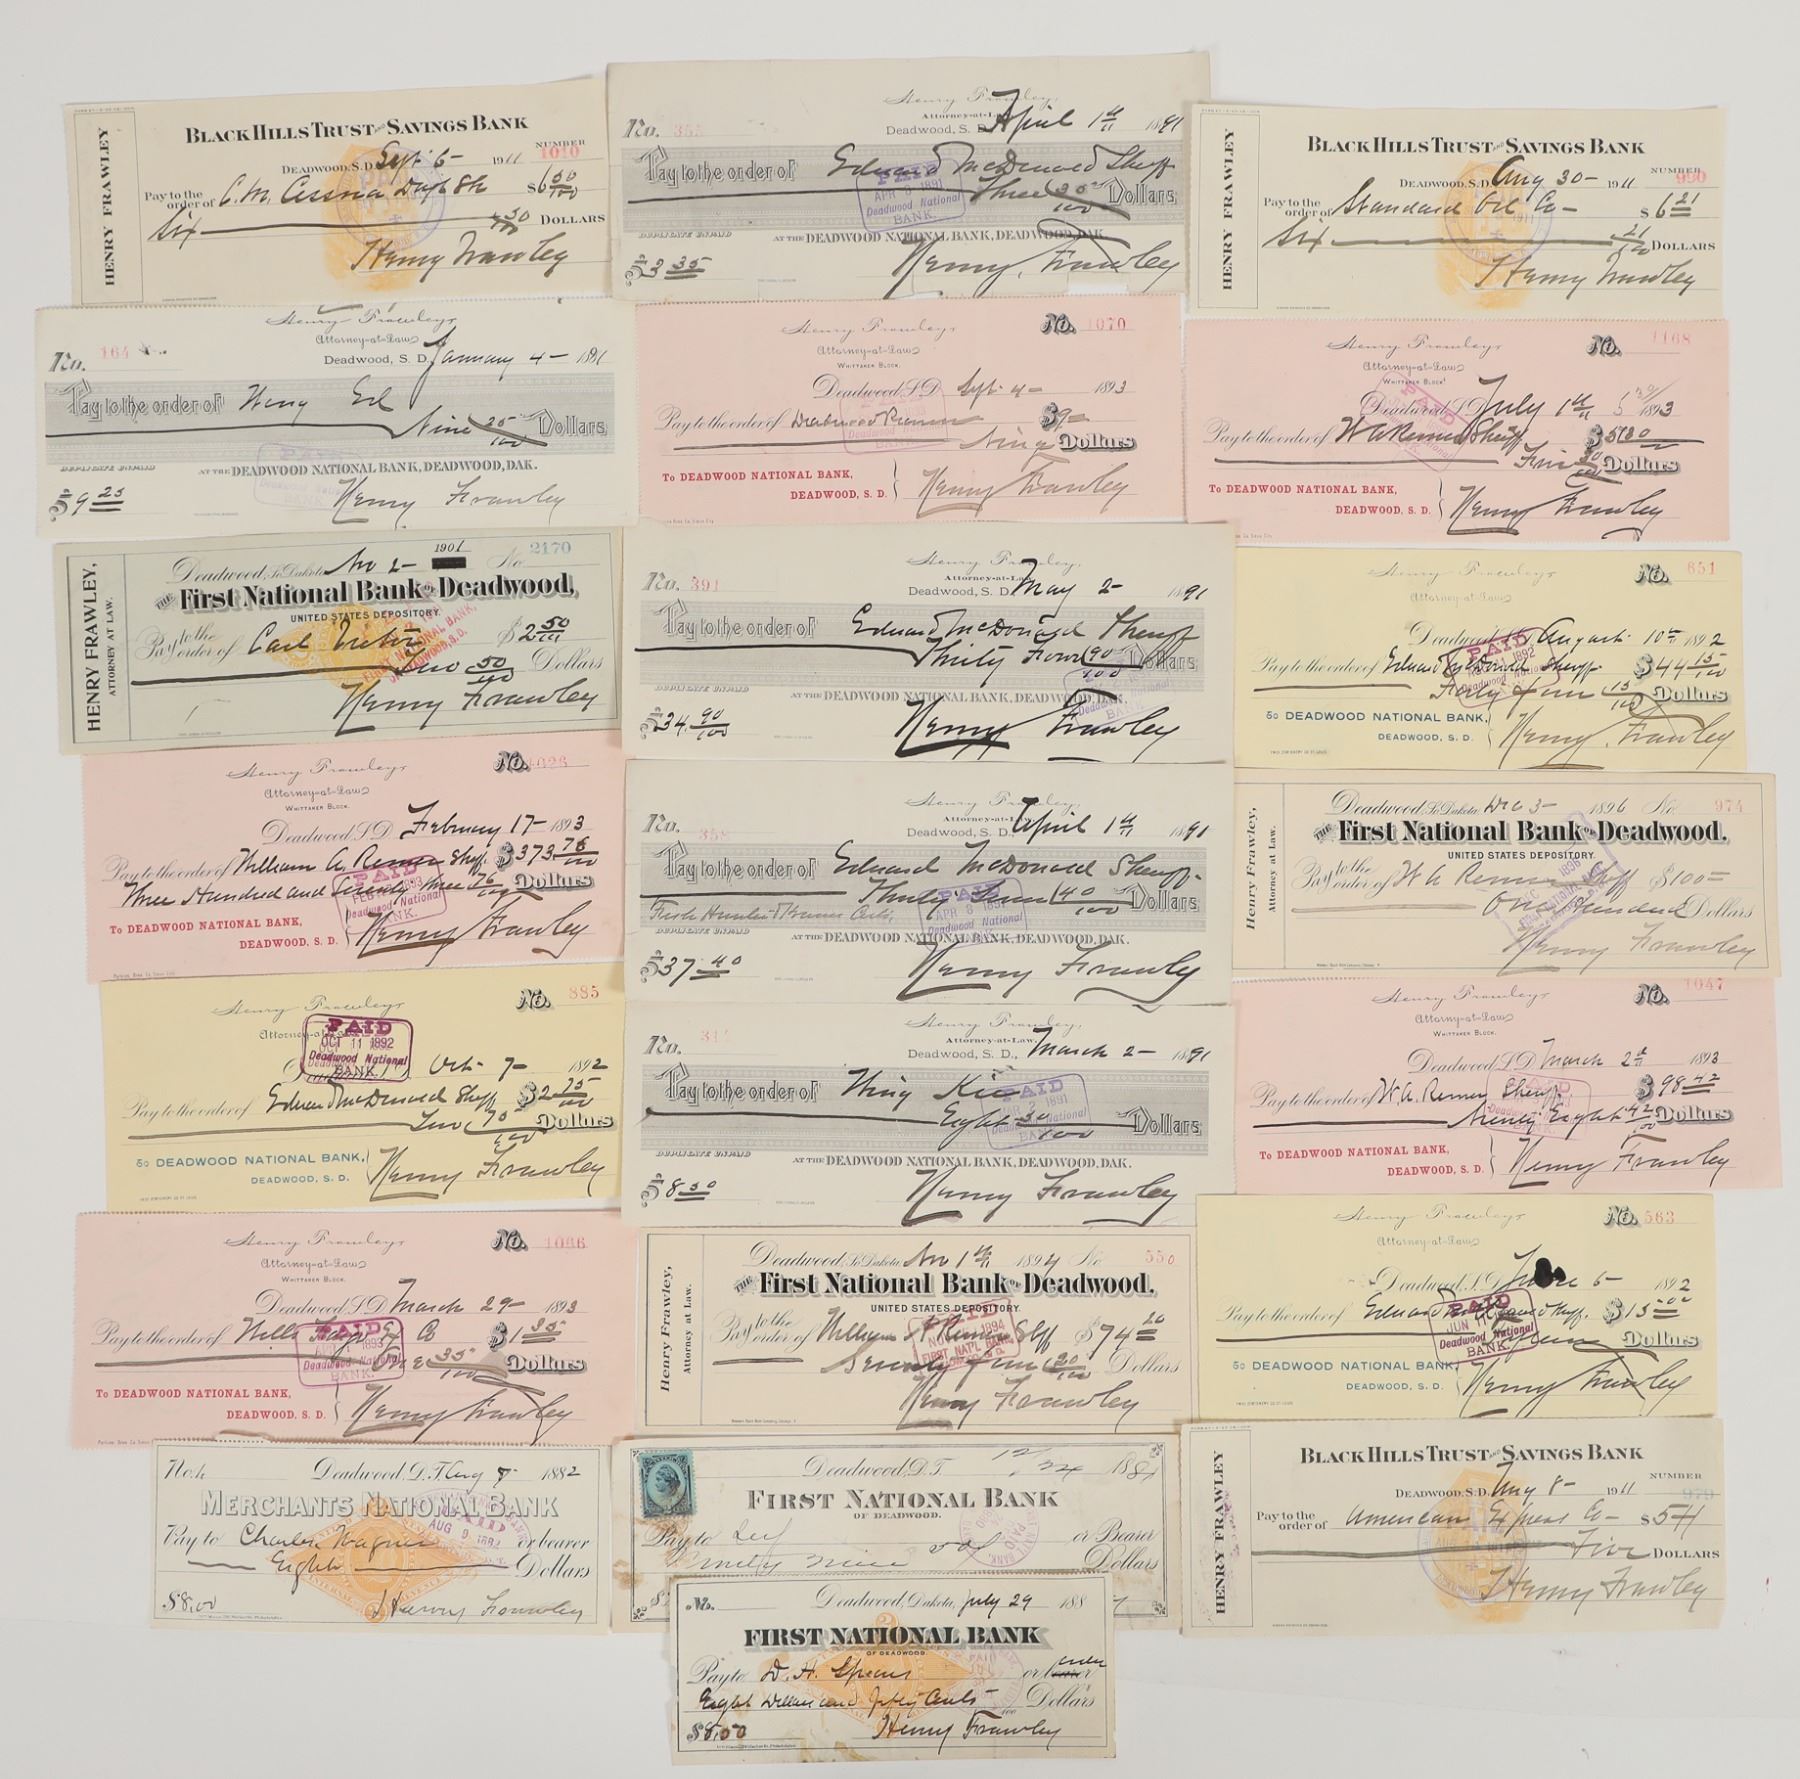 HENRY FRAWLEY
BLACK HILLS TRUST AND SAVINGS BANK
DEADWOOD, S.D. Sept 6- 1911 NUMBER 1010
Pay to the order of C. M. Cessna $6 50/100
Six 50/100 DOLLARS
Henry Frawley

Henry Frawley,
Attorney-at-Law
No. Deadwood, S. D. April 1st 1891
Pay to the order of Edward McDonald Sheff
Three 35/100 Dollars
PAID
APR 6 1891
Deadwood National
BANK.
DUPLICATE UNPAID AT THE DEADWOOD NATIONAL BANK, DEADWOOD, DAK.
$3 35 Henry Frawley

HENRY FRAWLEY
BLACK HILLS TRUST AND SAVINGS BANK
DEADWOOD, S.D. Aug 30- 1911 NUMBER 990
Pay to the order of Standard Oil Co- $6 21
Six 21/100 DOLLARS
Henry Frawley

Henry Frawley,
Attorney-at-Law
No. 164 Deadwood, S. D. January 4- 1891
Pay to the order of Wing
Nine 25/100 Dollars
DUPLICATE UNPAID AT THE DEADWOOD NATIONAL BANK, DEADWOOD, DAK.
$9 25 Henry Frawley

Henry Frawley, No. 1070
Attorney-at-Law
WHITTAKER BLOCK.
Deadwood, S.D. Sept 4- 1893
Pay to the order of Deadwood Pioneer $9-
Nine Dollars
TO DEADWOOD NATIONAL BANK,
DEADWOOD, S. D. Henry Frawley

Henry Frawley, No. 1168
Attorney-at-Law
WHITTAKER BLOCK.
Deadwood, S.D. July 1st 1893
Pay to the order of W A Remer Sheff
Dollars
TO DEADWOOD NATIONAL BANK,
DEADWOOD, S. D. Henry Frawley

HENRY FRAWLEY,
ATTORNEY AT LAW.
Deadwood, So. Dakota, Nov 2- 1901 No. 2170
THE First National Bank OF Deadwood,
UNITED STATES DEPOSITORY.
Pay to the order of Carl $2 50/100
Two 50/100 Dollars
Henry Frawley

Henry Frawley,
Attorney-at-Law
No. 391 Deadwood, S. D. May 2- 1891
Pay to the order of Edward McDonald Sheff
Thirty Four 90/100 Dollars
DUPLICATE UNPAID AT THE DEADWOOD NATIONAL BANK, DEADWOOD, DAK.
$34. 90/100 Henry Frawley

Henry Frawley, No. 651
Attorney-at-Law
Deadwood, S.D. August 10th 1892
Pay to the order of Edward McDonald Sheff $44 15/100
Forty four 15/100 Dollars
PAID
To DEADWOOD NATIONAL BANK,
DEADWOOD, S. D. Henry Frawley

Henry Frawley, No.
Attorney-at-Law
WHITTAKER BLOCK.
Deadwood, S.D. February 17- 1893
Pay to the order of William A. Remer Sheff. $373 76/100
Three Hundred and Seventy three 76/100 Dollars
PAID
Deadwood National
BANK.
TO DEADWOOD NATIONAL BANK,
DEADWOOD, S. D. Henry Frawley

Henry Frawley,
Attorney-at-Law
No. Deadwood, S. D., April 1st 1891
Pay to the order of Edward McDonald Sheff-
Thirty Seven 40/100 Dollars
PAID
APR 6 1891
Deadwood National
BANK.
DUPLICATE UNPAID AT THE DEADWOOD NATIONAL BANK, DEADWOOD, DAK.
$37. 40 Henry Frawley

Henry Frawley,
Attorney at Law.
Deadwood, So. Dakota, Dec 3- 1896 No. 974
THE First National Bank OF Deadwood,
UNITED STATES DEPOSITORY.
Pay to the order of W A Remer Sheff $100=
One Hundred Dollars
Henry Frawley

Henry Frawley, No. 885
PAID
OCT 11 1892
Deadwood National
BANK.
Oct- 7- 1892
Pay to the order of Edward McDonald Sheff
Two Dollars
To DEADWOOD NATIONAL BANK,
DEADWOOD, S. D. Henry Frawley

Henry Frawley,
Attorney-at-Law
No. Deadwood, S. D., March 2- 1891
Pay to the order of Wing Kie
Eight 50/100 Dollars
PAID
MAR 2 1891
Deadwood National
BANK.
DUPLICATE UNPAID AT THE DEADWOOD NATIONAL BANK, DEADWOOD, DAK.
$8 50 Henry Frawley

Henry Frawley, No. 1047
Attorney-at-Law
WHITTAKER BLOCK.
Deadwood, S.D. March 2d 1893
Pay to the order of W. A. Remer Sheff. $98 42
Ninety Eight 42/100 Dollars
TO DEADWOOD NATIONAL BANK,
DEADWOOD, S. D. Henry Frawley

Henry Frawley, No. 1066
Attorney-at-Law
WHITTAKER BLOCK.
Deadwood, S.D. March 29- 1893
Pay to the order of Wells Fargo Ex Co $1 35
One 35/100 Dollars
PAID
Deadwood National
BANK.
TO DEADWOOD NATIONAL BANK,
DEADWOOD, S. D. Henry Frawley

Henry Frawley,
Attorney at Law.
Deadwood, So. Dakota, Nov 1st 1894 No. 550
THE First National Bank OF Deadwood,
UNITED STATES DEPOSITORY.
Pay to the order of William A Remer Sheff $74 20
Seventy four 20/100 Dollars
FIRST NAT'L BANK
Henry Frawley

Henry Frawley, No. 563
Attorney-at-Law
Deadwood, S.D. June 6- 1892
Pay to the order of Edward McDonald Sheff. $15
Dollars
PAID
Deadwood National
BANK.
To DEADWOOD NATIONAL BANK,
DEADWOOD, S. D. Henry Frawley

No. Deadwood, D.T. Aug 8 1882
MERCHANTS NATIONAL BANK
Pay to Charles Wagner or bearer
Eight Dollars
$8.00 Henry Frawley

Deadwood, D.T. 12/24 188
FIRST NATIONAL BANK
OF DEADWOOD.
Pay to Self or Bearer
Ninety nine Dollars

HENRY FRAWLEY
BLACK HILLS TRUST AND SAVINGS BANK
DEADWOOD, S.D. Aug 8- 1911 NUMBER 979
Pay to the order of American Express Co-
Five DOLLARS
Henry Frawley

No. Deadwood, Dakota, July 29 188
FIRST NATIONAL BANK
OF DEADWOOD.
Pay to D. H. Spears or bearer order
Eight Dollars and fifty Cents Dollars
$8.50 Henry Frawley